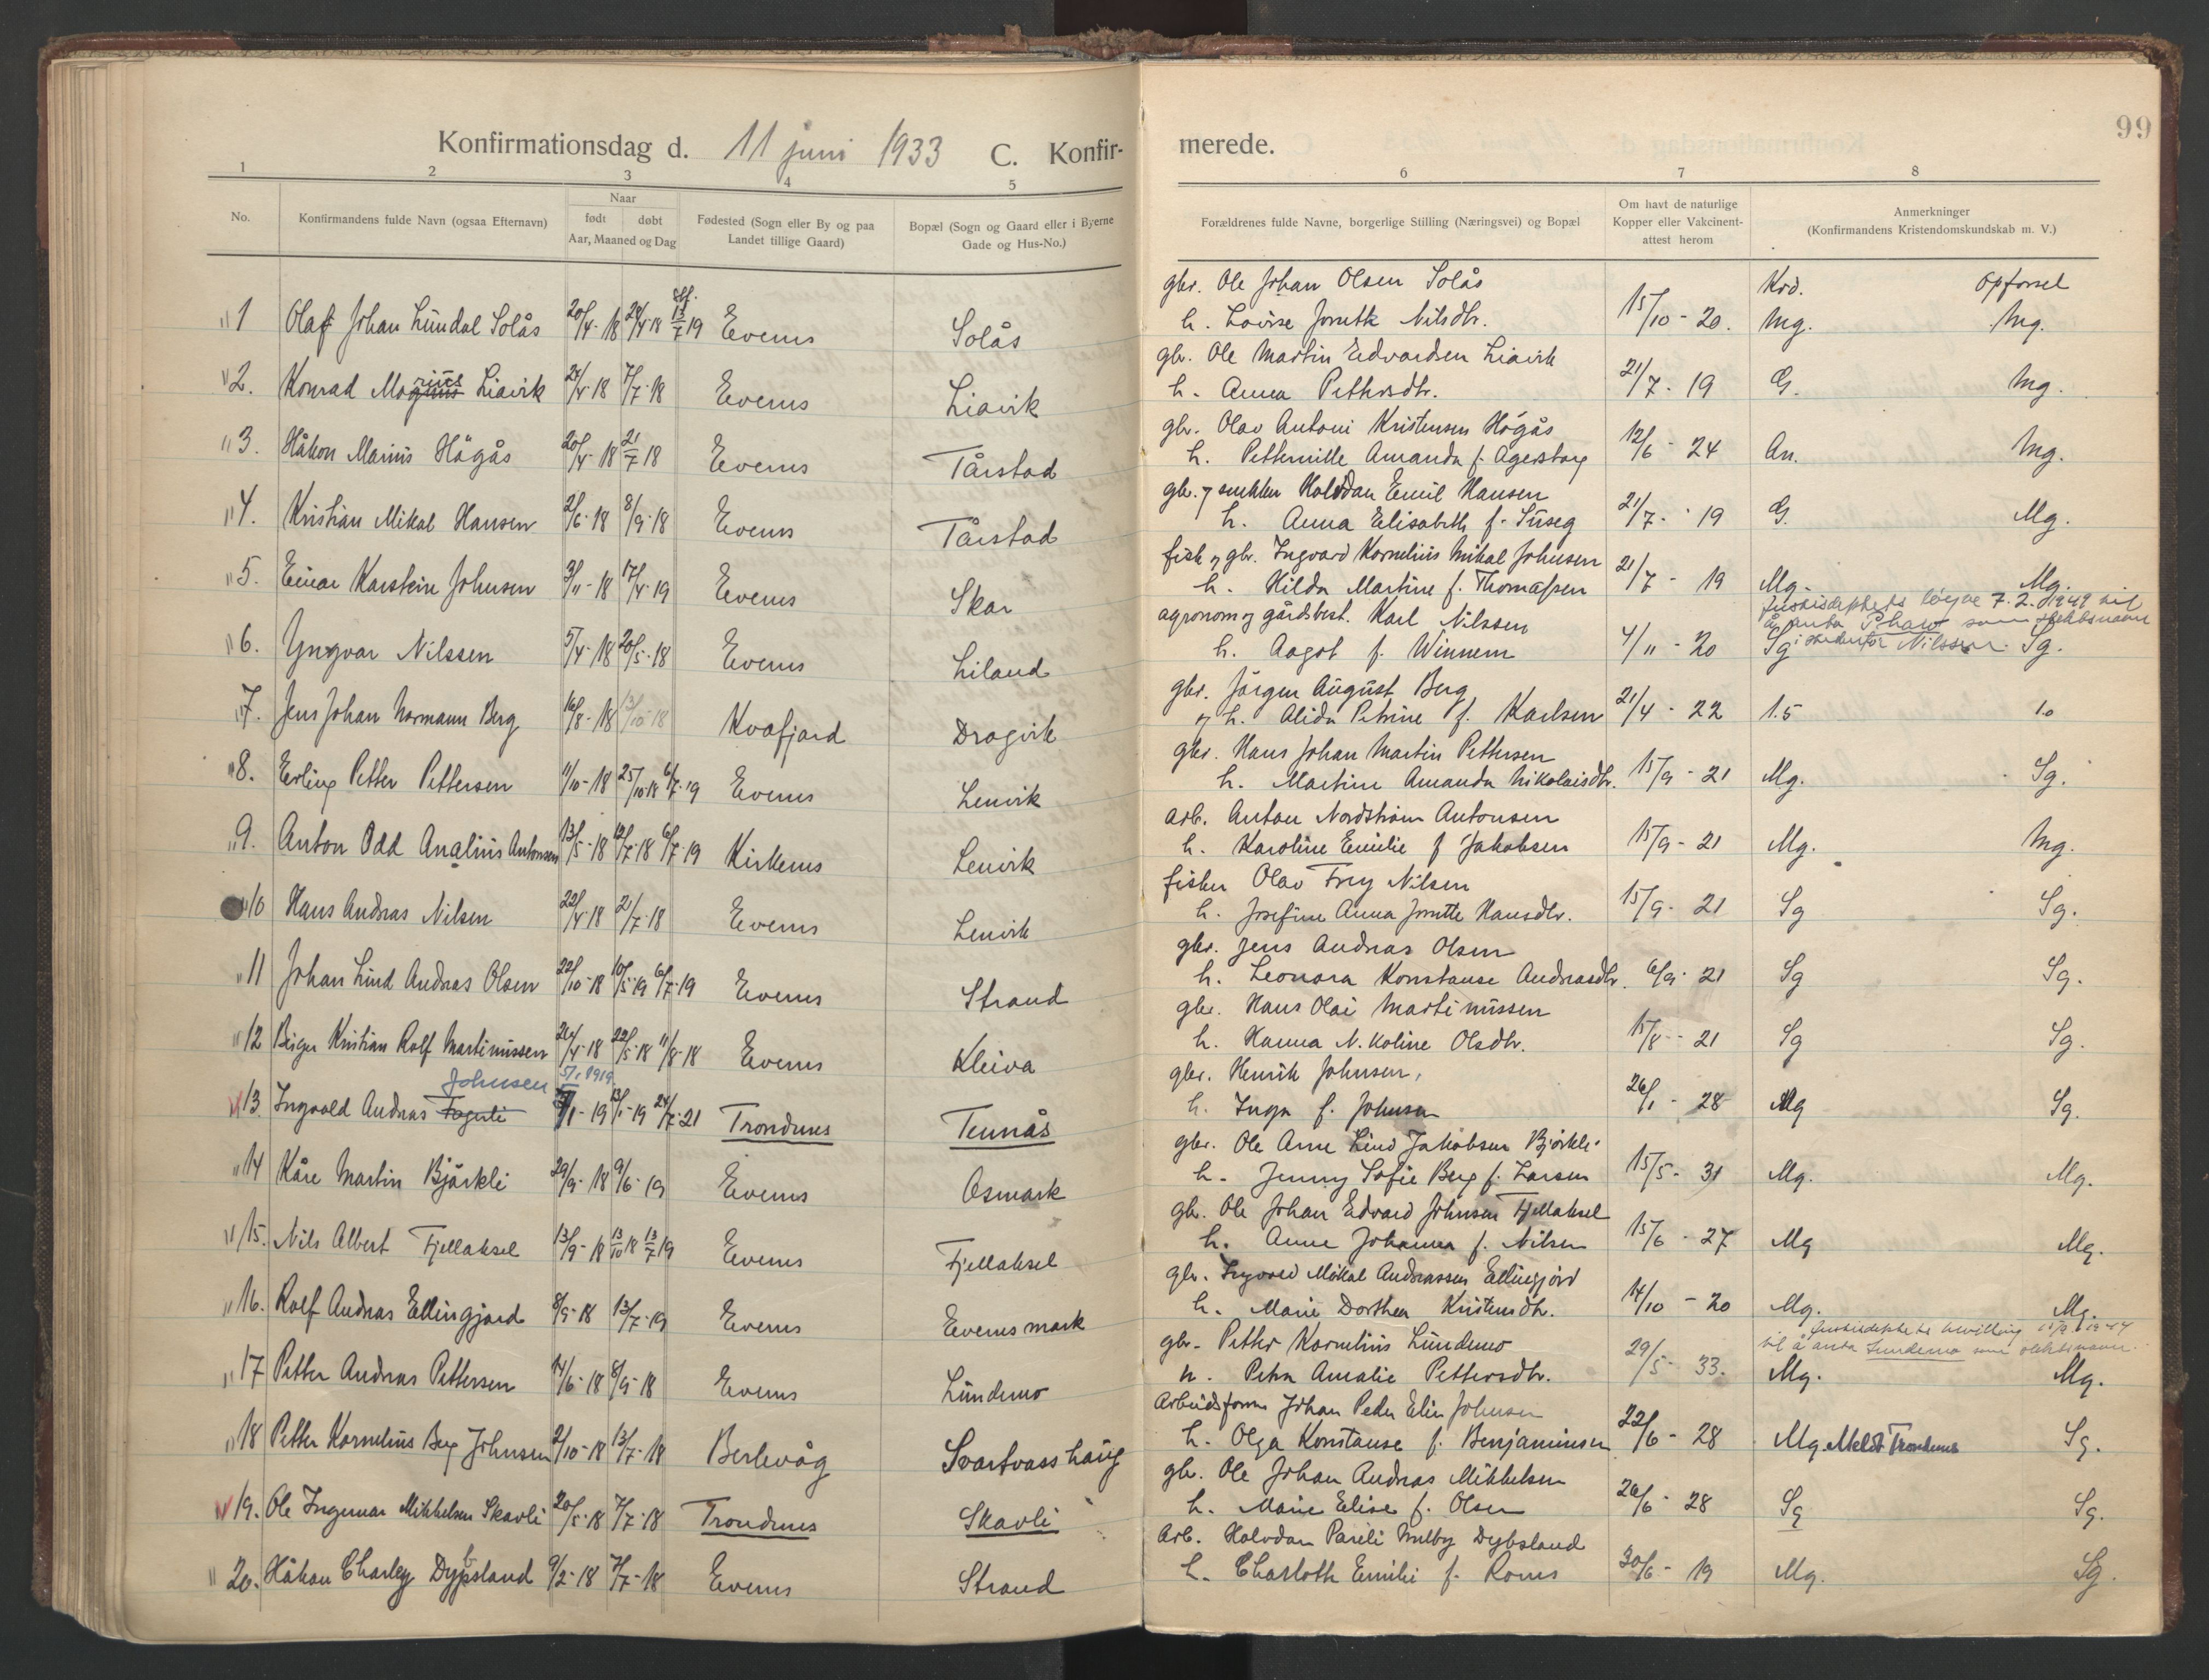 99
Konfirmationsdag d. 11 juni 1933 C. Konfir-
merede.
1 2 3 4 5
6 7 8
No.
Konfirmandens fulde Navn (ogsaa Efternavn)
Naar
født døbt
Aar, Maaned og Dag
Fødested (Sogn eller By og paa
Landet tillige Gaard)
Bopæl (Sogn og Gaard eller i Byerne
Gade og Hus-No.)
Forældrenes fulde Navne, borgerlige Stilling (Næringsvei) og Bopæl
Om havt de naturlige
Kopper eller Vakcinent-
attest herom
Anmerkninger
(Konfirmandens Kristendomskundskab m. V.)
Krd. Opførsel
1 Olaf Johan Lündal Solås 20/4-18 28/4-18 13/7 19 Evenes Solås
gbr. Ole Johan Olsen Solås
h. Lovise Nilsdtr. 15/10-20. Mg. Mg.
2. Konrad Marius Liavik 24/4-18 7/7-18 Evenes Liavik
gbr. Ole Martin Edvardsen Liavik
h. Anna Pettersdtr. 21/7-19 G. Mg.
3. Håkon Marius Högås 20/4-18 21/7 18 Evenes Tårstad
gbr. Olav Antoni Kristensen Högås
h. Petternille Amanda f. Agersborg 12/6-24 An. Mg.
4. Kristian Mikal Hansen 2/6-18 8/9-18 Evenes Tårstad
gbr. og snekker Halvdan Emil Hansen
h. Anna Elisabeth f. 21/7-19 G. Mg.
5. Einar Karstein Johnsen 3/11-18 17/4-19 Evenes Skar
fisk og gbr. Ingvard Kornelius Mikal Johnsen
h. Hilda Martine f. Thomassen 21/7-19 Mg. Mg.
7.2.1949 til
å anta som slektsnavn
i stedenfor Nilssen.
6. Yngvar Nilssen 5/4-18 20/5-18 Evenes Liland
agronom og gårdbest. Karl Nilssen
h. Aagot f. Winnem 4/11-20 Sg Sg.
7. Jens Johan Normann Berg 16/8-18 13/10-18 Kvæfjord Dragvik
gbr. Jørgen August Berg
og h. Alida Petrine f. Karlsen 21/4-22 1.5 1.0
8. Erling Petter Pettersen 1/10-18 25/10-18 6/7-19 Evenes Lenvik
gbr. Hans Johan Martin Pettersen
h. Martine Amanda Nikolaisdtr. 15/9-21 Mg. Sg.
9. Anton Odd Analius Antonsen 13/5-18 6/7-19 Kirkenes Lenvik
arb. Anton Nordstrøm Antonsen
h. Karoline Emilie f Jakobsen 15/9-21 Mg. Mg.
10 Hans Andreas Nilsen 22/4-18 2/7-18 Evenes Lenvik
fisker Olav Frey Nilsen
h. Josefine Anna Hansdtr. 15/9-21 Sg Sg.
11 Johan Lind Andreas Olsen 22/10-18 10/5-19 6/7-19 Evenes Strand
gbr. Jens Andreas Olsen
h. Leonora Konstanse Andreasdtr. 6/9-21 Sg Sg.
12 Birger Kristian Rolf Martinussen 26/4-18 22/5-18 11/8-18 Evenes Kleiva
gbr. Hans Olai Martinussen
h. Hanna N.koline Olsdtr. 15/8-21 Sg Sg.
Johnsen 5/1 1919
13. Ingvald Andreas Fagerli 1-19 24/7-21 Trondenes Tennås
gbr. Henrik Johnsen,
h. Inga f. Johnsen 26/1-28 Mg Sg.
14 Kåre Martin Björkli 29/9-18 9/6-19 Evenes Osmark
gbr. Ole Arne Lind Jakobsen Bjørkli
h. Jenny Sofie Berg f. Larsen 15/5-31 Mg. Mg.
15. Nils Albert Fjellaksel 13/9-18 13/10 18 13/7 19 Evenes Fjellaksel
gbr. Ole Johan Edvard Johnsen Fjellaksel
h. Anne Johanna f. Nilsen 15/6-27 Mg Mg.
16. Rolf Andreas Ellingjord 8/9-18 13/7-19 Evenes Evenesmark
gbr. Ingvald Mikal Andreassen Ellingjord
h. Marie Dorthea Kristensdtr. 14/10-20 Mg. Mg.
bevilling
til å anta Lundemo som slektsnavn.
17 Petter Andreas Pettersen 14/6-18 8/9-18 Evenes Lündemo
gbr. Petter Kornelius Lündemo
h. Petra Amalie Pettersdtr. 29/5-33. Mg. Mg.
18 Petter Kornelius Berg Johnsen 2/10-18 13/7-18 Berlevåg Svartvasshaug
Arbeidsform Johan Peder Elin Johnsen
h. Olga Konstanse f. Benjaminsen 22/6-28 Mg. Meldt Trondenes Sg.
19. Ole Ingemar Mikkelsen Skavli 20/5-18 7/7-18 Trondenes Skavli
gbr. Ole Johan Andreas Mikkelsen
h. Marie Elise f. Olsen 26/6-28 Sg Sg.
20. Håkon Charley Dybsland 9/2-18 7/7-18 Evenes Strand
Arb. Halvdan Pareli Dybsland
h. Charlotte Emilie f. 30/6-19 Mg. Sg.